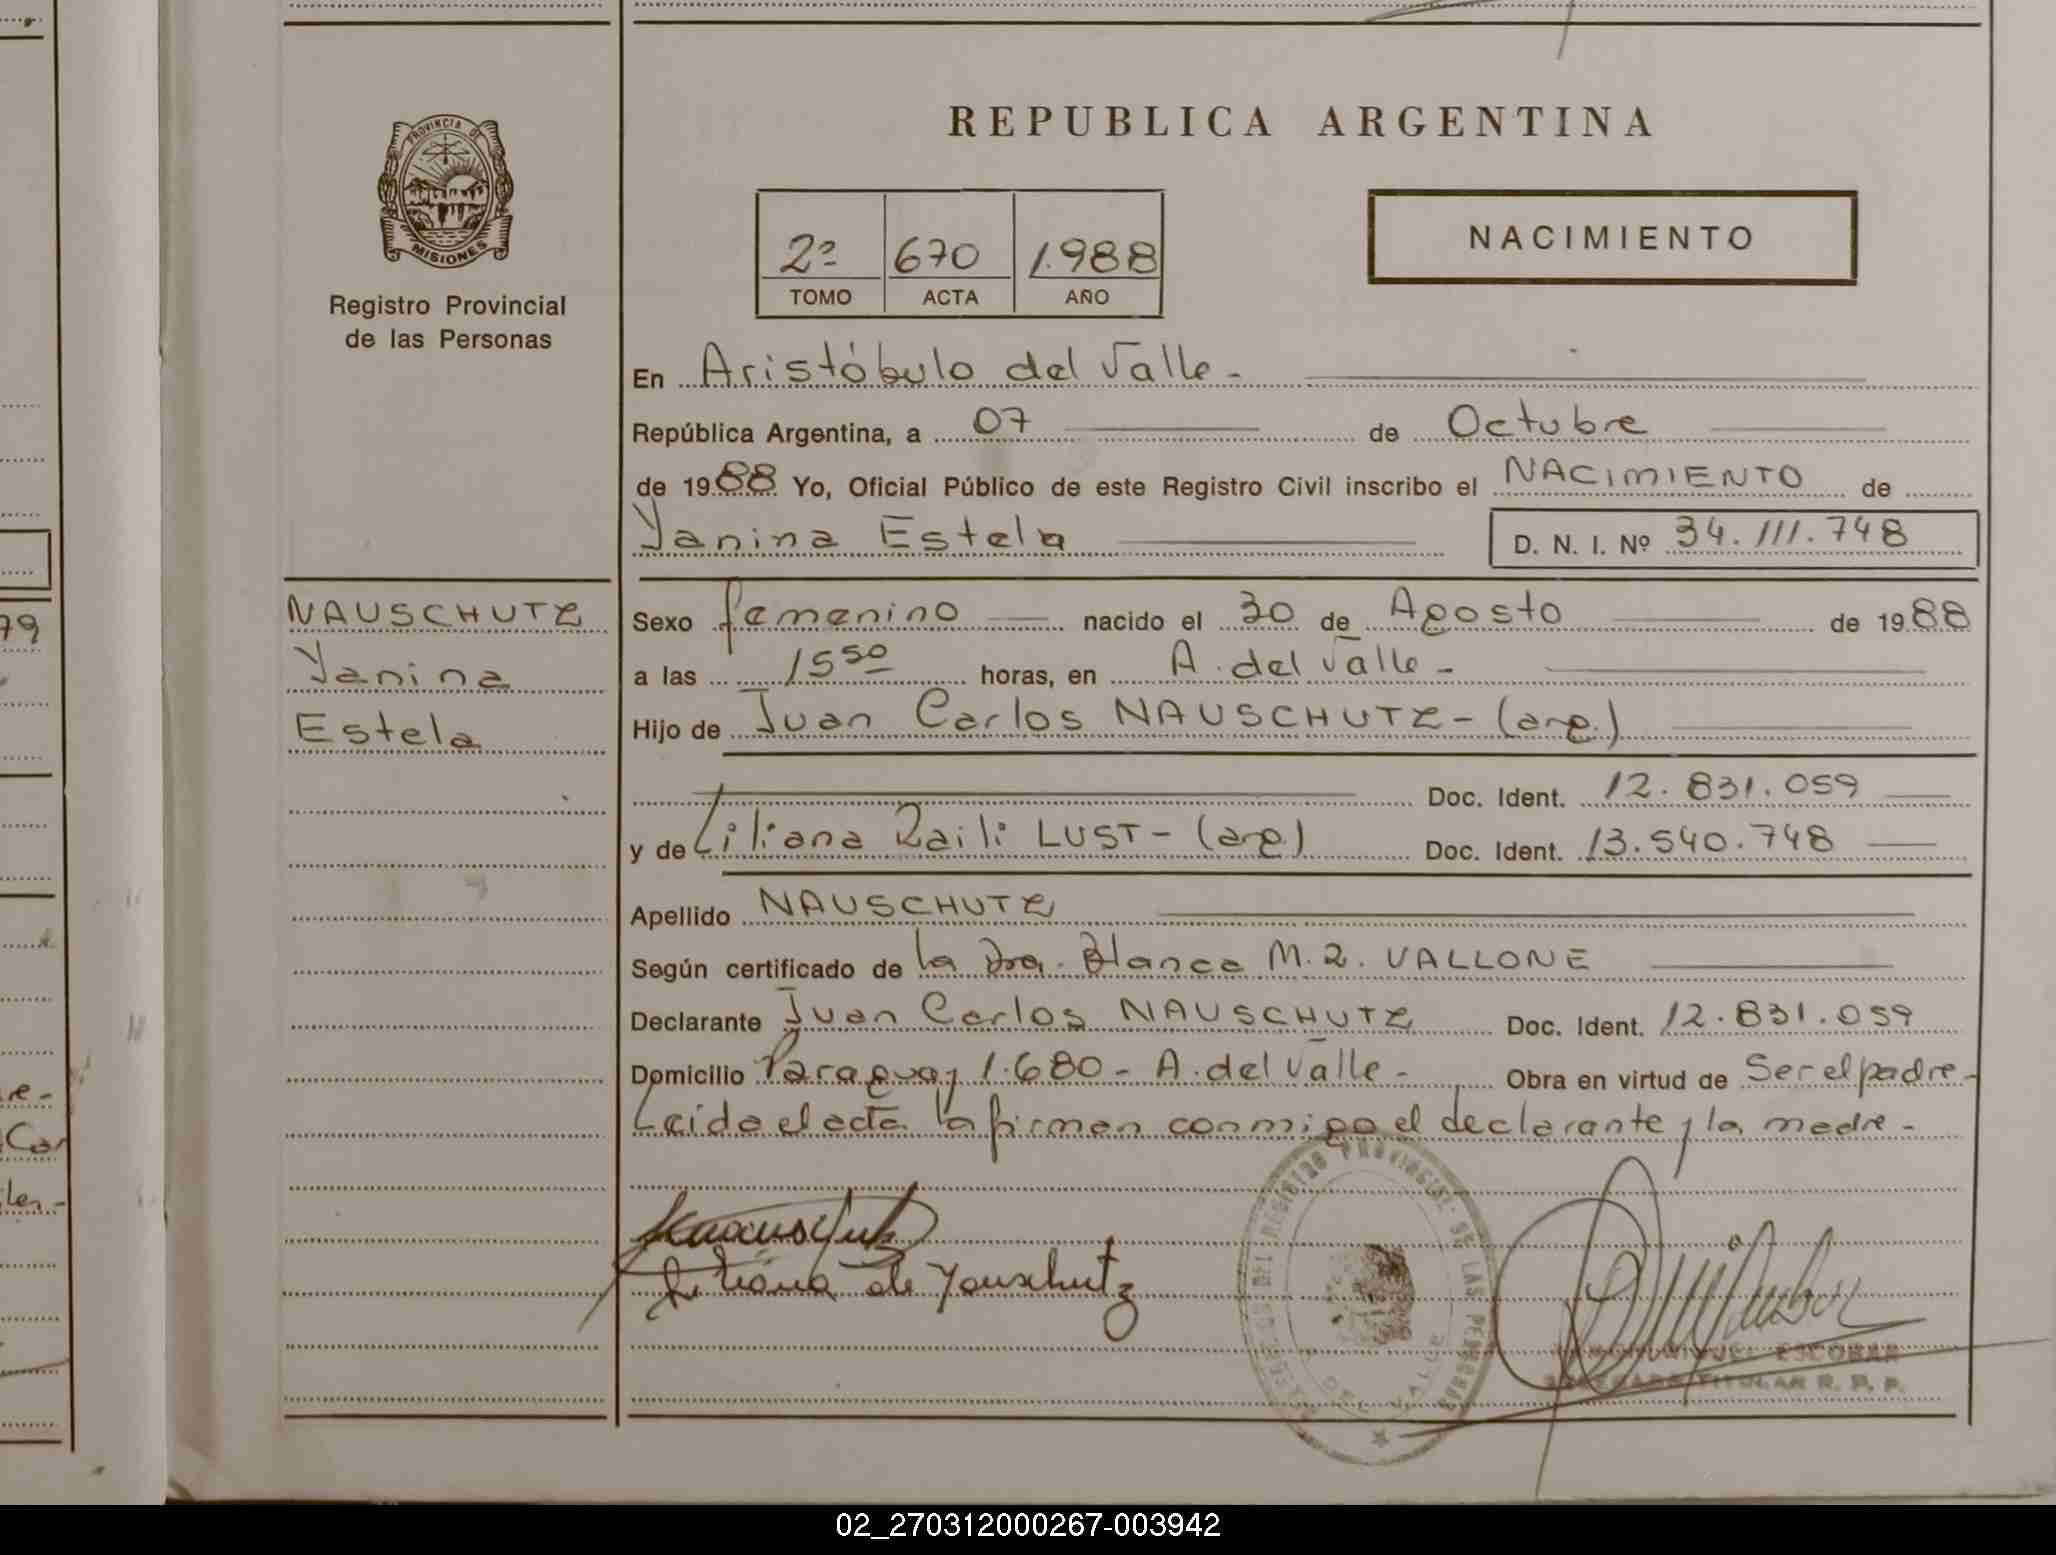 REPUBLICA ARGENTINA
PROVINCIA DE
MISIONES
Registro Provincial
de las Personas
2º 670 1.988
TOMO ACTA AÑO
NACIMIENTO
En Aristóbulo del Valle -
República Argentina, a 07 de Octubre
de 1988 Yo, Oficial Público de este Registro Civil inscribo el NACIMIENTO de
Yanina Estela D. N. I. Nº 34.111.748
NAUSCHUTZ
Yanina
Estela
Sexo femenino nacido el 30 de Agosto de 1988
a las 15 50 horas, en A. del Valle -
Hijo de Juan Carlos NAUSCHUTZ - (arg.)
Doc. Ident. 12.831.059
y de Liliana Raili LUST - (arg) Doc. Ident. 13.540.748
Apellido NAUSCHUTZ
Según certificado de la Dra. Blanca M. R. VALLONE
Declarante Juan Carlos NAUSCHUTZ Doc. Ident. 12.831.059
Domicilio Paraguay 1.680 - A. del Valle - Obra en virtud de Ser el padre -
Leida el acta la firman conmigo el declarante y la madre -
Liliana de Nauschutz
DEL REGISTRO PROVINCIAL DE LAS PERSONAS
DEL VALLE
MIGUEL ESCOBAR
TITULAR R. P. P.
79
re -
Car
les -
02_270312000267-003942